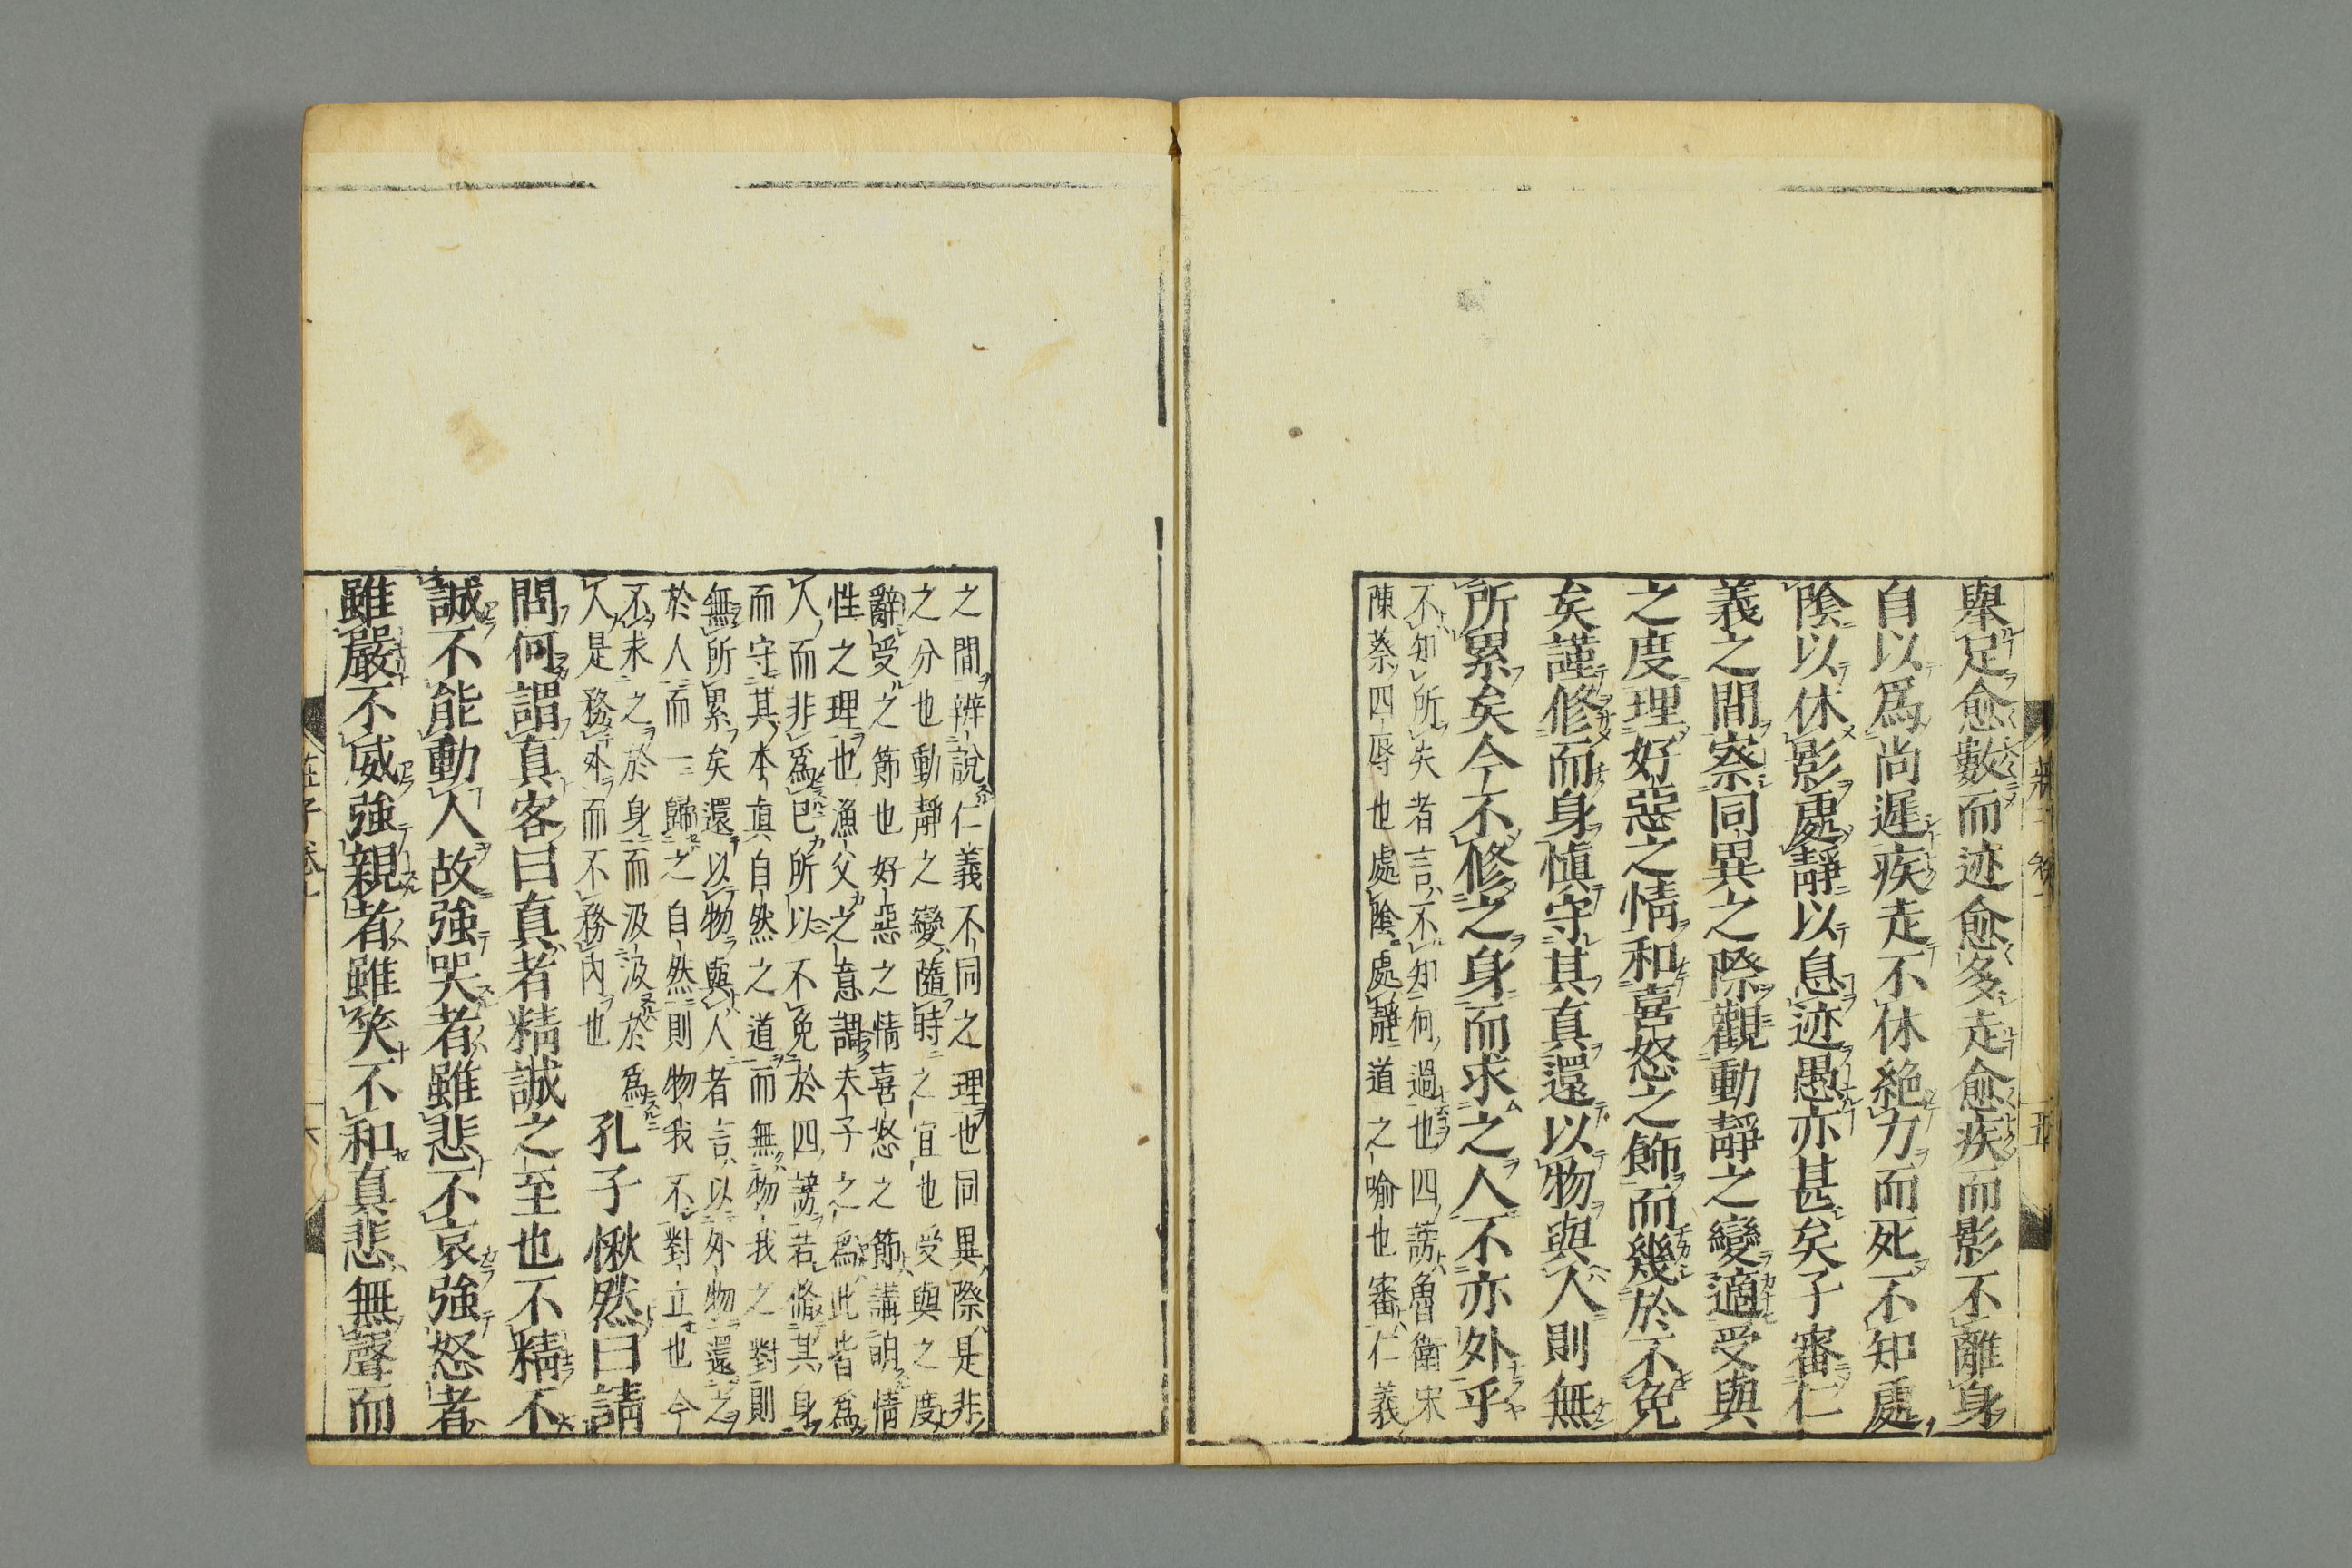 舉足愈數而迹愈多走愈疾而影不離身
自以爲尚遲疾走不休絶力而死不知處
陰以休影處靜以息迹愚亦甚矣子審仁
義之間察同異之際觀動靜之變適受與
之度理好惡之情和喜怒之節而幾於不免
矣謹修而身慎守其真還以物與人則無
所累矣今不修之身而求之人不亦外乎
不知所失者言不知何過也四謗魯衛宋
陳蔡四辱也處陰處靜道之喻也審仁義
之間辨說仁義不同之理也同異際是非
之分也動靜之變隨時之宜也受與之度
辭受之節也好惡之情喜怒之節講明情
性之理也漁父之意謂夫子之爲此皆爲
人而非爲已所以不免於四謗若脩其身
而守其本真自然之道而無物我之對則
無所累矣還以物與人者言以外物還之
於人而一歸之自然則物我不對立也今
不求之於身而汲汲於爲
人是務外而不務內也
孔子愀然曰請
問何謂真客曰真者精誠之至也不精不
誠不能動人故強哭者雖悲不哀強怒者
雖嚴不威強親者雖笑不和真悲無聲而
莊子卷十